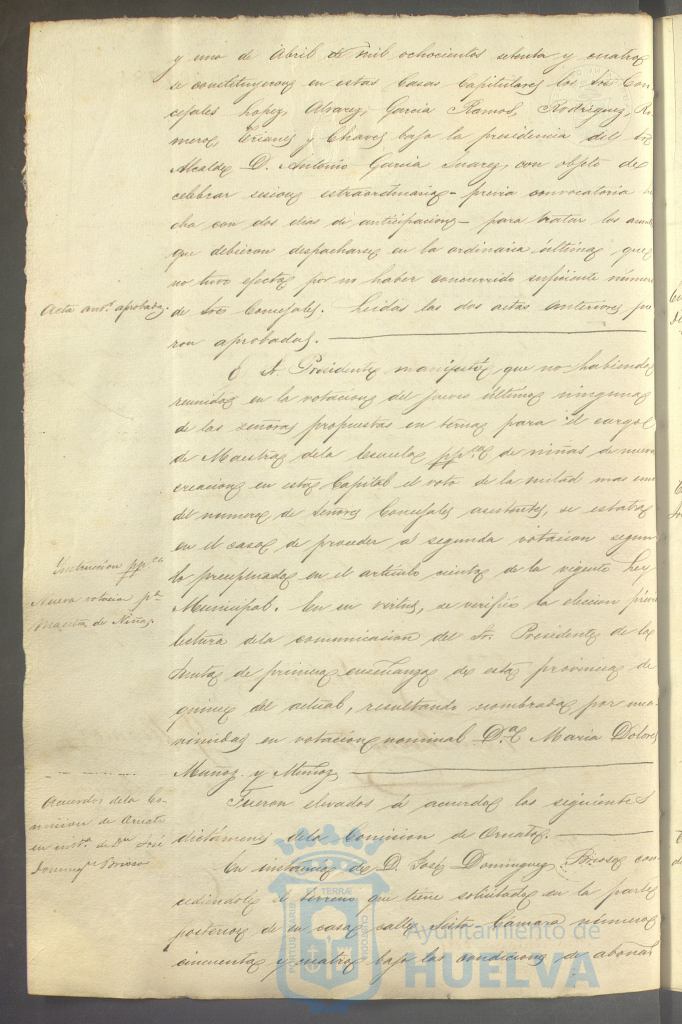 y uno de Abril de mil ochocientos setenta y cuatro
se constituyeron en estas Casas Capitulares los Sres Con-
cejales Lopez, Alvarez, Garcia Ramos, Rodriguez, Ro-
mero, Terianes y Chaves bajo la presidencia del Sr
Alcalde D. Antonio Garcia Suarez, con objeto de
celebrar sesion estraordinaria - previa convocatoria he
cha con dos dias de anticipacion - para tratar los asunt
que debieron despacharse en la ordinaria última, que
no tuvo efecto por no haber concurrido suficiente número
Acta antr. aprobada.
de Sres Concejales. Leidas las dos actas anteriores fue
ron aprobadas.
El Sr Presidente manifestó que no habiendo
reunido en la votacion del jueves último ninguna
de las señoras propuestas en terna para el cargo
de Maestra dela Escuela ppca de niñas de nueva
creacion en esta Capital el voto de la mitad mas uno
del número de Señores Concejales asistentes, se estaba
en el caso de proceder á segunda votacion segun
lo preceptuado en el artículo ciento de la vigente Ley
Municipal. En su virtud, se verificó la eleccion prévia
lectura dela comunicacion del Sr. Presidente de la
Junta de primera enseñanza de esta provincia de
quince del actual, resultando nombrada por una-
nimidad en votacion nominal Da Maria Dolores
Muñoz y Muñoz
Instruccion ppca
Nueva votacion pa
Maestra de Niñas.
Fueron elevados á acuerdo los siguientes
dictámenes dela Comision de Ornato.
Acuerdos dela Co-
mision de Ornato
en insta. de Dn José
Domingz Brioso
En instancia de D. José Dominguez Brioso con-
cediendole el terreno que tiene solicitado en la parte
posterior de su casa calle Rita Cámara número
cincuenta y cuatro bajo las condiciones de abonar
PORTUS MARIS
ET TERRAE
CUSTODIA
Ayuntamiento de
HUELVA